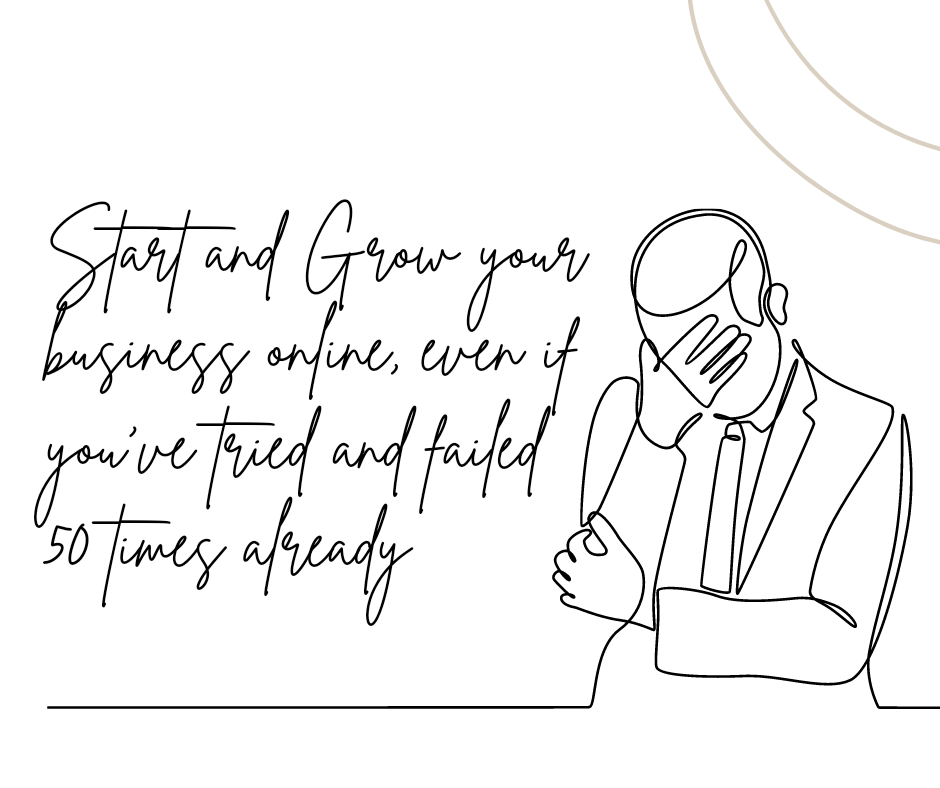 Start and Grow your
business online, even if
you've tried and failed
50 times already